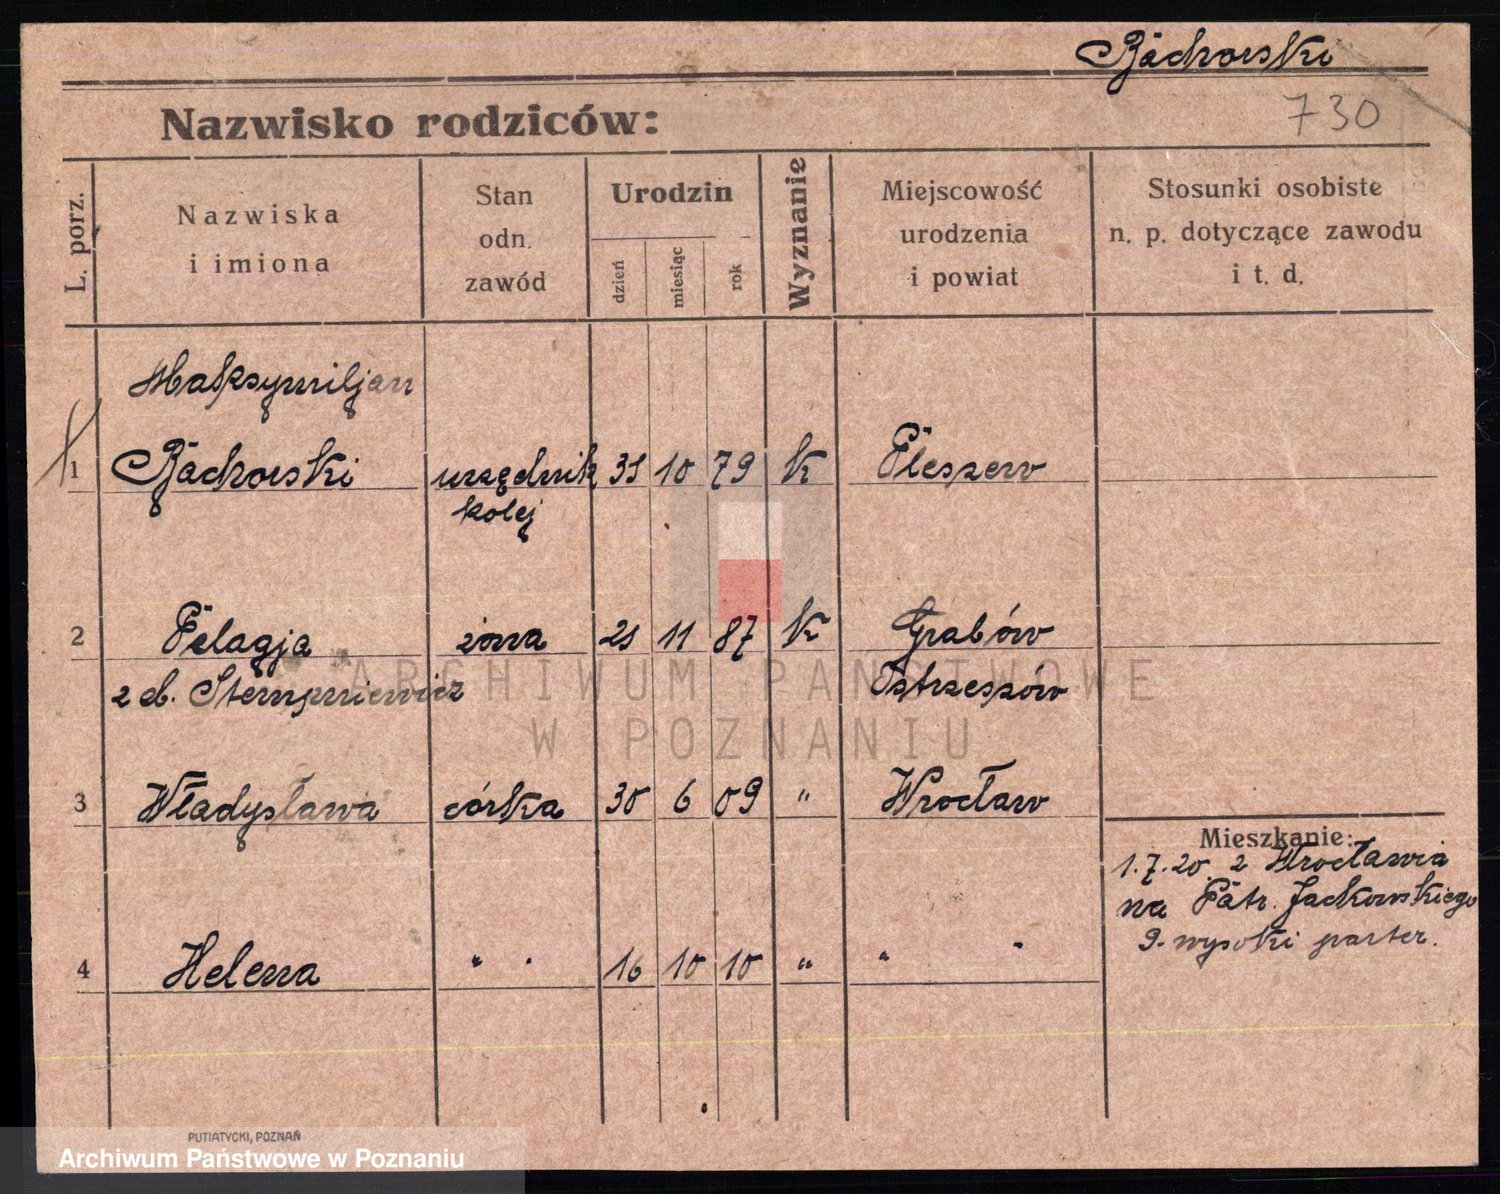 Bachorski
730
Nazwisko rodziców:
L. porz.
Nazwiska
i imiona
Stan
odn.
zawód
Urodzin
dzień
miesiąc
rok
Wyznanie
Miejscowość
urodzenia
i powiat
Stosunki osobiste
n. p. dotyczące zawodu
i t. d.
Maksymiljan
1 Bachorski urzędnik 31 10 79 K Pleszew
kolej
2 Pelagja żona 21 11 87 K Grabów
z d. Stempniewicz Ostrzeszów
3 Władysława córka 30 6 09 " Wrocław
Mieszkanie:
1.7.20. z Wrocławia
na Patr. Jackowskiego
9. wysoki parter.
4 Helena " " 16 10 10 " " "
ARCHIWUM PAŃSTWOWE
W POZNANIU
PUTIATYCKI, POZNAŃ
Archiwum Państwowe w Poznaniu